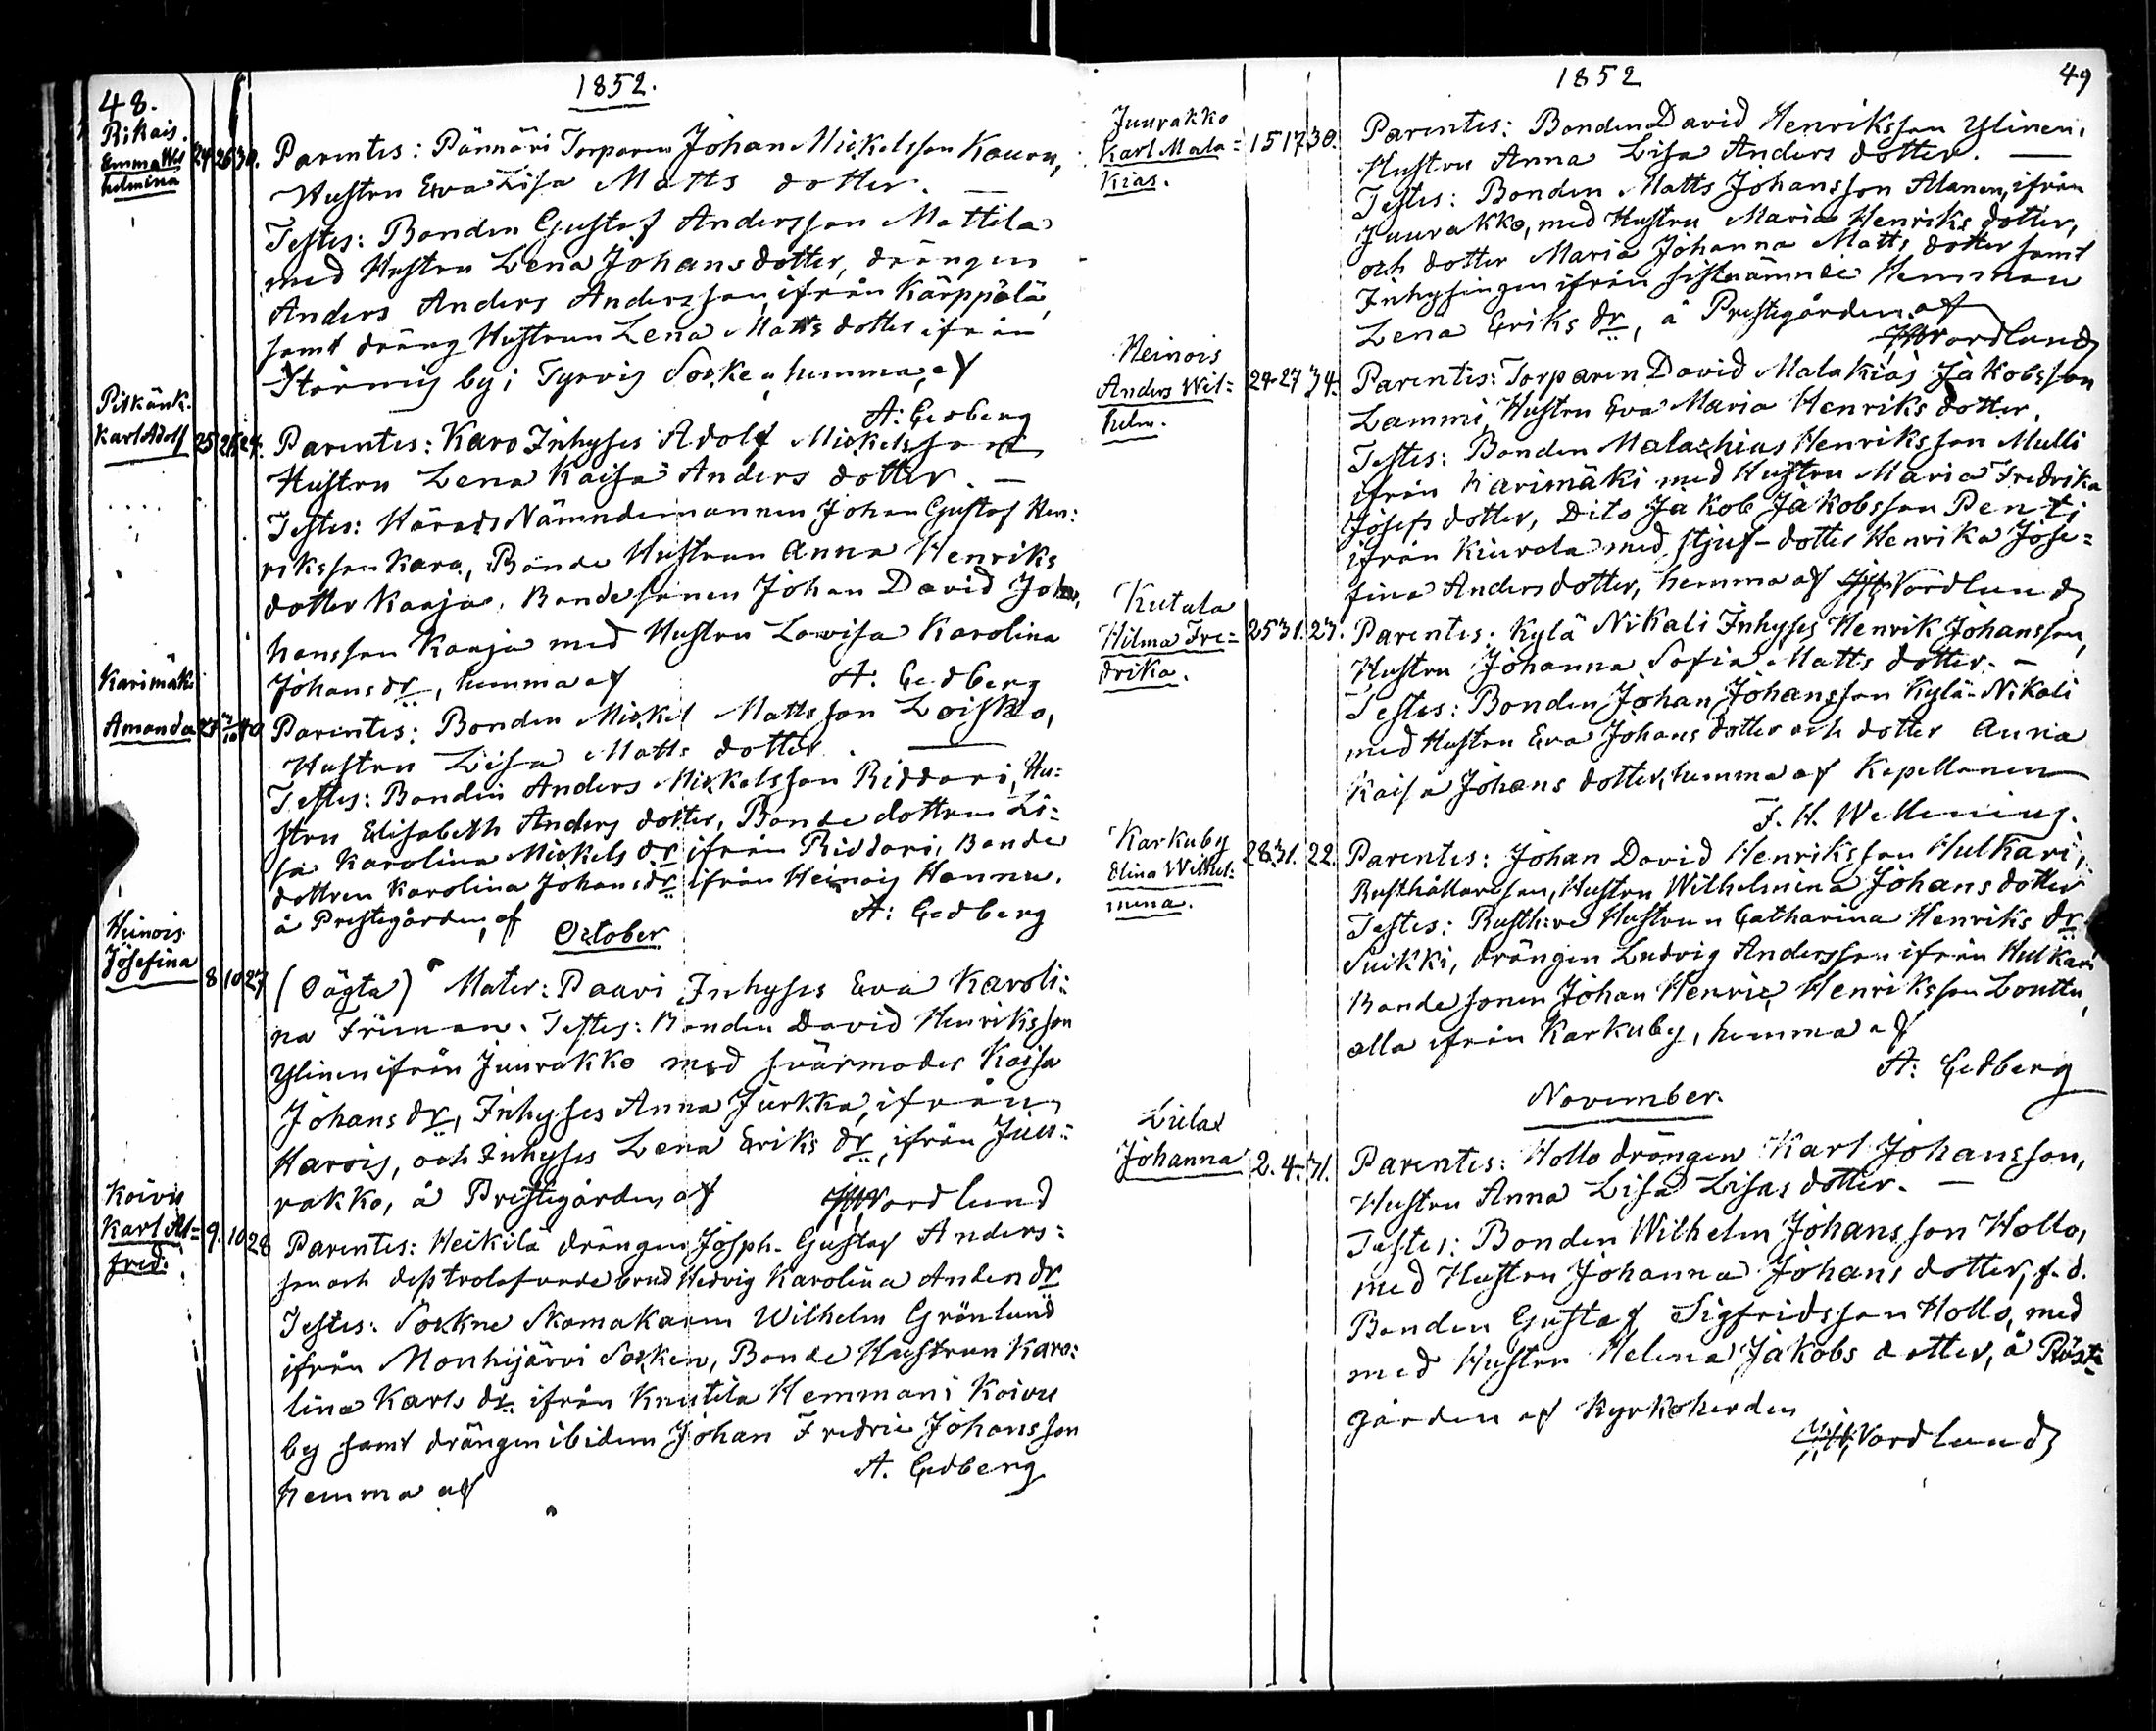 48.
1852.
Rikais.
Emma Wil
helmina
24 26 30.
Parentes: Pännäri Torparen Johan Mickelsson Kouru,
Hustru Eva Lisa Matts dotter. —
Testes: Bonden Gustaf Andersson Mattila
med Hustru Lena Johansdotter, drängen
Anders Anders Andersson, ifrån Kärppälä,
samt dräng Hustrun Lena Matts dotter ifrån
Stormis by i Tyrvis Socken hemma, af
A: Gedberg
Piskänk.
Karl Adolf
25 26 24.
Parentes: Karo Inhyses Adolf Mickelsson
Hustru Lena Kaisa Anders dotter. —
Testes: Härads Nämndemannen Johan Gustaf Hen:
riksson Karo, Bonde Hustrun Anna Henriks
dotter Kaaja, Bondesonen Johan David Jo
hansson Kaaja med Hustru Lovisa Karolina
Johans dr, hemma af
A. Gedberg
Karimäki
Amanda
Parentes: Bonden Mickel Mattsson Loisko,
Hustru Lisa Matts dotter. —
Testes: Bonden Anders Mickelsson Riddari, Hu:
stru Elisabeth Anders dotter, Bonde dottren Li:
sa Karolina Mickels dr ifrån Riddari, Bonde
dottren Karolina Johans dr ifrån Heinois Hannu.
å Prestegården, af
A: Gedberg
October
Heinois
Josefina
8 10 27
(Oägta) Mater: Paavi Inhyses Eva Karoli:
na Friman. Testes: Bonden David Henriksson
Ylinen ifrån Juurakko med svärmoder Kaisa
Johans dr, Inhyses Anna Jurkka, ifrån
Harois, och Inhyses Lena Eriks dr, ifrån Juu:
rakko, å Prestegården af
Nordlund
Koivu
Karl Al=
fred.
9. 10 28
Parentes: Heikilä drängen Josph. Gustaf Anders:
son och dess trolofvade brud Hedvig Karolina Anders dr
Testes: Sockne Skomakaren Wilhelm Grönlund
ifrån Mouhijärvi Socken, Bonde Hustrun Karo:
lina Karls dr. ifrån Knutila Hemman i Koivu
by samt drängen ibidem Johan Fredric Johansson
hemma af
A. Gedberg
1852
49
Juurakko
Karl Mala=
kias.
15 17 30.
Parentes: Bonden David Henriksson Ylinen,
Hustru Anna Lisa Anders dotter. —
Testes: Bonden Matts Johansson Alanen, ifrån
Juurakko, med Hustru Maria Henriks dotter,
och dotter Maria Johanna Matts dotter samt
Inhysingen ifrån sistnämnde Hemman
Lena Eriks dr, å Prestegården af
Nordlund
Heinois
Anders Wil=
helm.
24 27 34.
Parentes: Torparen David Malakias Jakobsson
Lammi, Hustru Eva Maria Henriks dotter.
Testes: Bonden Malachias Henriksson Mulli
ifrån Karimäki med Hustru Maria Fredrika
Josefs dotter, Dito Jakob Jakobsson Penti
ifrån Kiurala med stjuf-dotter Henrika Jose=
fina Andersdotter, hemma af Nordlund
Kutala
Hilma Fre=
drika.
25 31. 23.
Parentes: Kylä Nikali Inhyses Henrik Johansson,
Hustru Johanna Sofia Matts dotter. —
Testes: Bonden Johan Johansson Kylä-Nikali
med Hustru Eva Johans dotter och dotter Anna
Kaisa Johans dotter, hemma af Kapellanen
F. H. Wellenius.
Karkuby
Elina Wilhel:
mina.
28 31. 22.
Parentes: Johan David Henriksson Hulkari,
Rusthållareson, Hustru Wilhelmina Johans dotter
Testes: Rusth:re Hustrun Catharina Henriks dr
Suikki, drängen Ludvig Andersson ifrån Hulkari
Bonde sonen Johan Henric Henriksson Louttu,
alla ifrån Karkuby, hemma af
A: Gedberg
November.
Liela
Johanna
2. 4. 31.
Parentes: Hollo drängen Karl Johansson,
Hustru Anna Lisa Lisas dotter. —
Testes: Bonden Wilhelm Johansson Hollo,
med Hustru Johanna Johans dotter, f. d.
Bonden Gustaf Sigfridsson Hollo, med
med Hustru Helena Jakobs dotter, å Präst
gården af Kyrkoherden
Nordlund